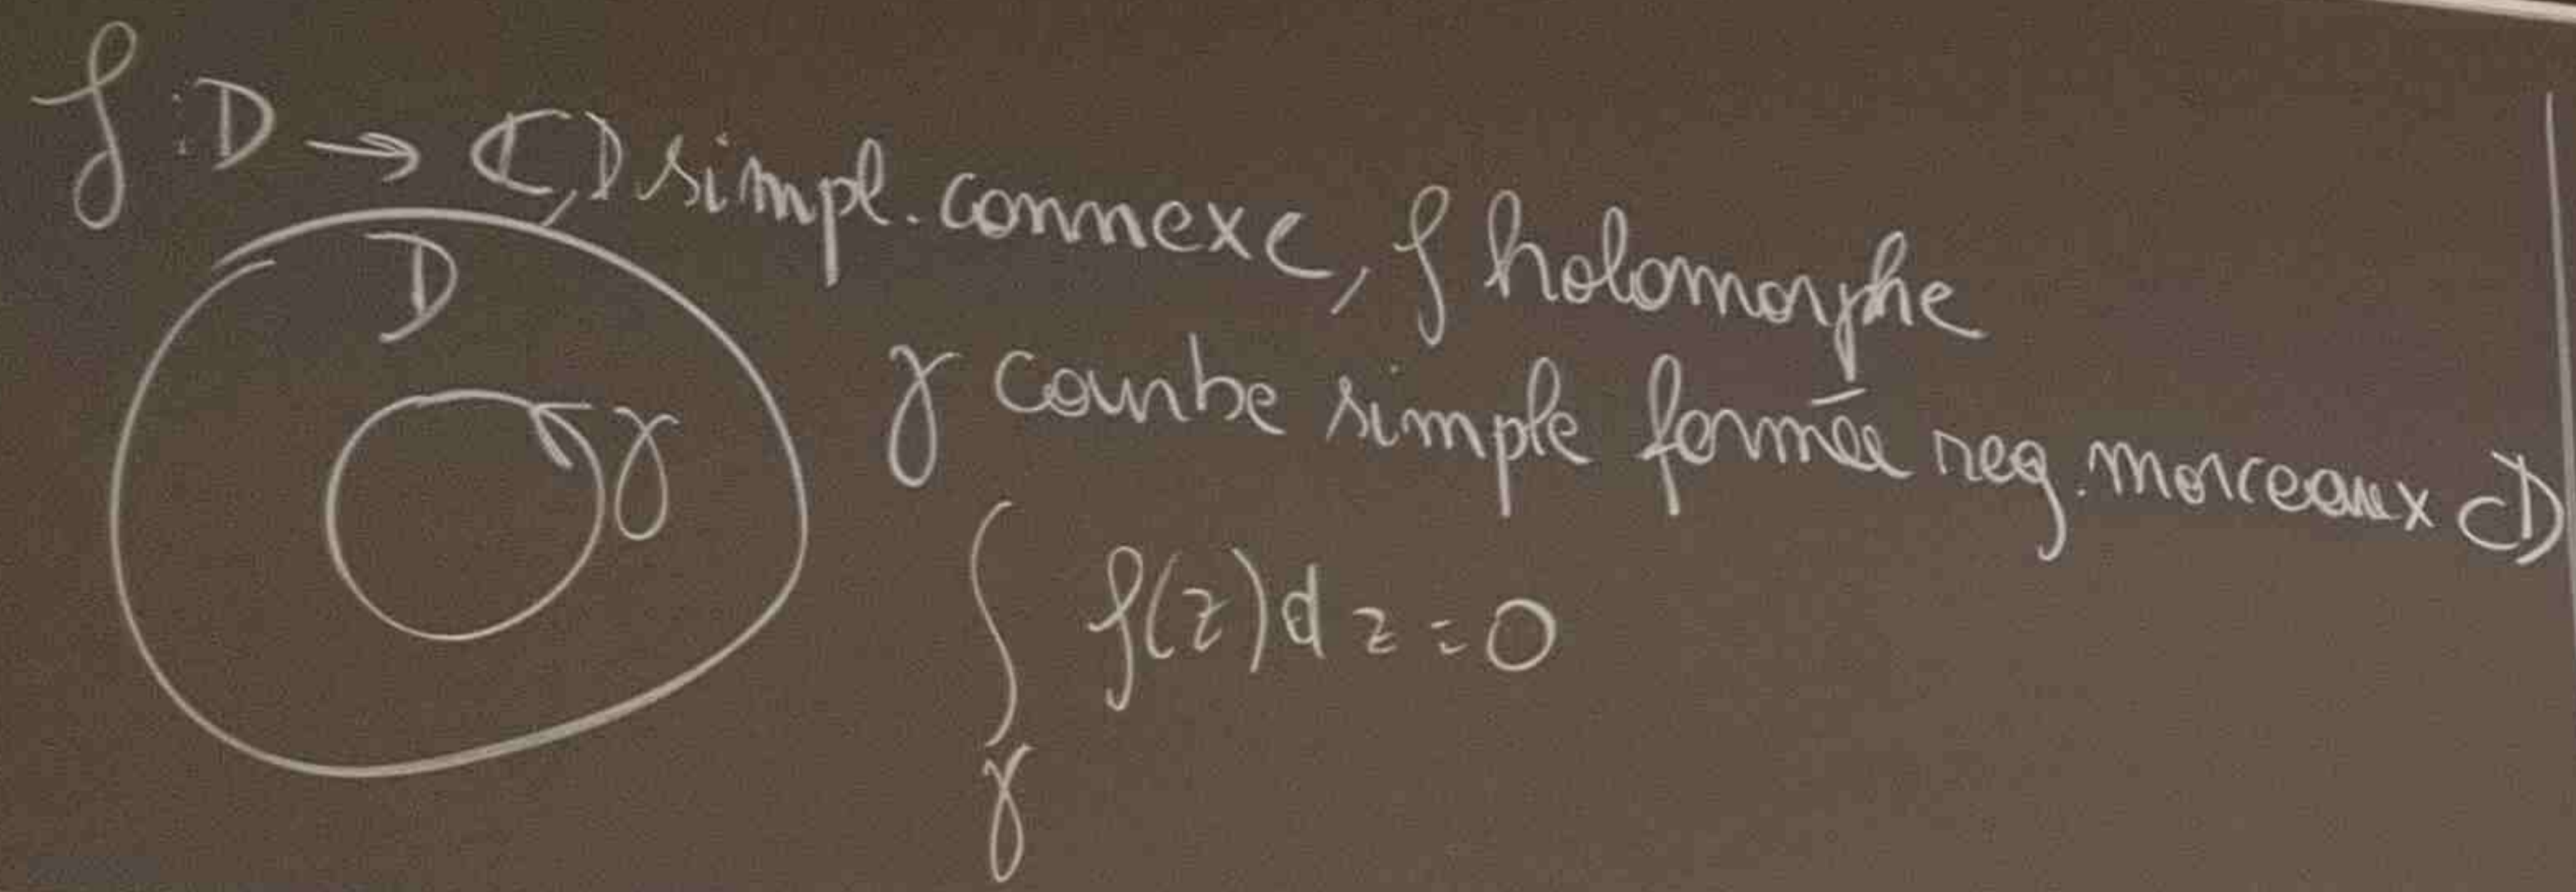 f : D → ℂ, D simpl. connexe, f holomorphe
D
γ
γ courbe simple fermée reg. morceaux ⊂ D
∫_γ f(z)dz = 0